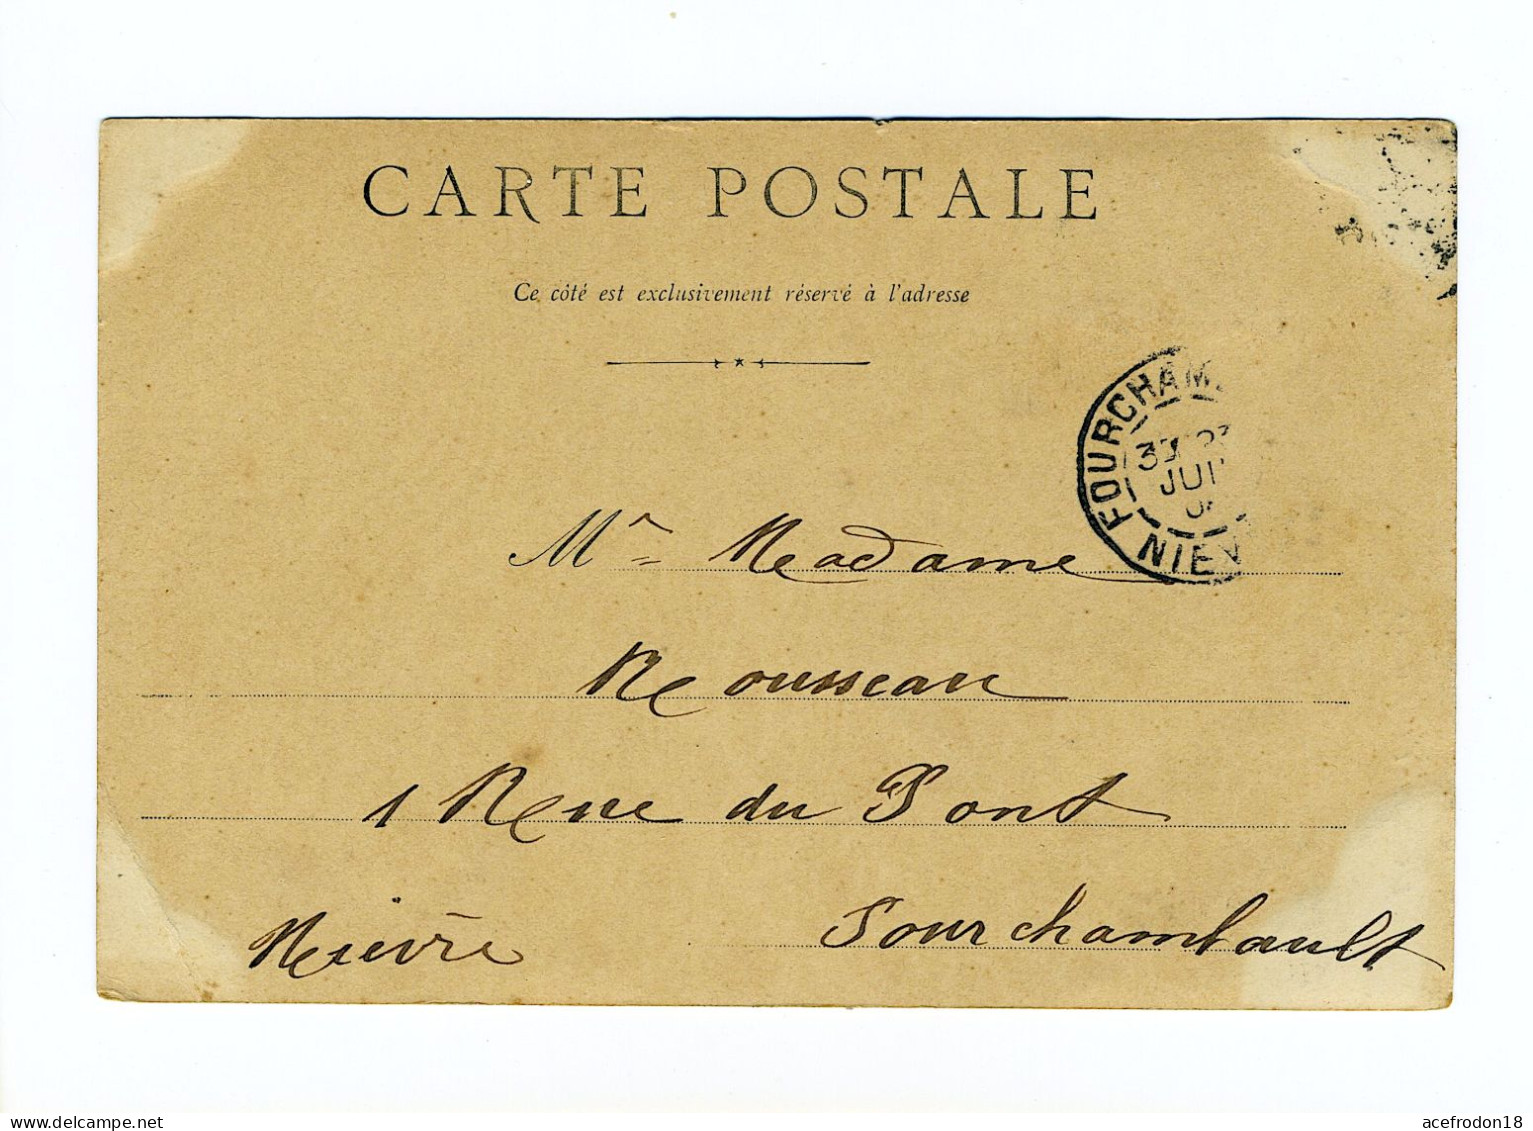 CARTE POSTALE
Ce côté est exclusivement réservé à l'adresse
FOURCHAM
JUI
NIEV
Mr Madame
Rousseau
1 Rue du Pont
Fourchambault
Nièvre
acefrodon18